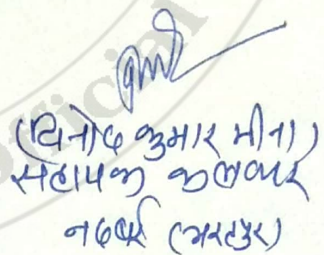 (विनोद कुमार मीना)
सहायक कलक्टर
नदबई (भरतपुर)